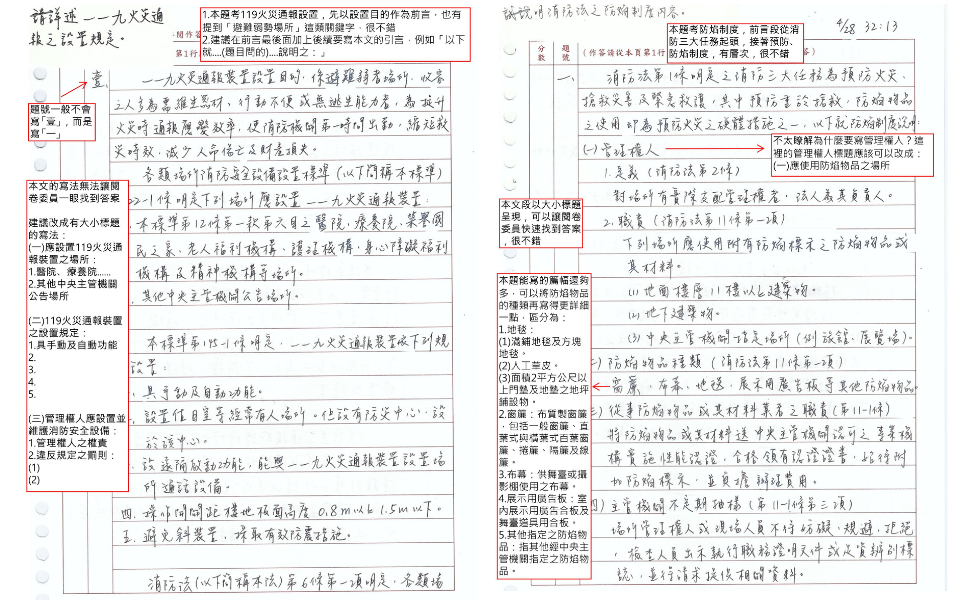 請詳述一一九火災通
報之設置規定。
1.本題考119火災通報設置，先以設置目的作為前言，也有
提到「避難弱勢場所」這類關鍵字，很不錯
2.建議在前言最後面加上後續要寫本文的引言，例如「以下
就....(題目問的)...說明之：」
第1行
壹、
題號一般不會
寫「壹」，而是
寫「一」
一一九火災通報裝置設置目的，係避難弱者場所，收容
之人多為需維生器材、行動不便或無逃生能力者，為提升
火災時通報應變效率，使消防機關第一時間出動，縮短救
災時效，減少人命傷亡及財產損失。
各類場所消防安全設備設置標準（以下簡稱本標準）
22-1條明定下列場所應設置一一九火災通報裝置：
本標準第12條第一款第六目之醫院、療養院、榮譽國
民之家、老人福利機構、護理機構、身心障礙福利
機構及精神機構等場所。
其他中央主管機關公告場所。
本文的寫法無法讓閱
卷委員一眼找到答案
建議改成有大小標題
的寫法：
(一)應設置119火災通
報裝置之場所：
1.醫院、療養院......
2.其他中央主管機關
公告場所
(二)119火災通報裝置
之設置規定：
1.具手動及自動功能
2.
3.
4.
5.
(三)管理權人應設置並
維護消防安全設備：
1.管理權人之權責
2.違反規定之罰則：
(1)
(2)
本標準第145-1條明定，一一九火災通報裝置依下列規
設置：
具手動及自動功能。
設置值日室等經常有人場所。但設有防災中心，設
於該中心。
設遠隔啟動功能，能與一一九火災通報裝置設置場
所通話設備。
四、操作開關距樓地板面高度 0.8m以上 1.5m以下。
五、避免斜裝置，採取有效防震措施。
消防法（以下簡稱本法）第6條第一項明定，各類場
試說明消防法之防焰制度內容。
4/28 32:13
本題考防焰制度，前言段從消
防三大任務起頭，接著預防、
防焰制度，有層次，很不錯
分數
題號
（作答請從本頁第1行
一、
消防法第1條明定之消防三大任務為預防火災、
搶救災害及緊急救護，其中預防重於搶救，防焰物品
之使用即為預防火災之硬體措施之一，以下就防焰制度說明：
(一)管理權人
不太瞭解為什麼要寫管理權人？這
裡的管理權人標題應該可以改成：
(一)應使用防焰物品之場所
1.定義（消防法第2條）
對場所有實際支配管理權者，法人為其負責人。
本文段以大小標題
呈現，可以讓閱卷
委員快速找到答案
，很不錯
2.職責（消防法第11條第一項）
下列場所應使用附有防焰標示之防焰物品或
其材料。
(1)地面樓層11樓以上建築物。
(2)地下建築物。
(3)中央主管機關指定場所（例旅館、展覽場）。
本題能寫的篇幅還夠
多，可以將防焰物品
的種類再寫得更詳細
一點，區分為：
1.地毯：
(1)滿鋪地毯及方塊
地毯。
(2)人工草皮。
(3)面積2平方公尺以
上門墊及地墊之地坪
鋪設物。
2.窗簾：布質製窗簾
，包括一般窗簾、直
葉式與橫葉式百葉窗
簾、捲簾、隔簾及線
簾。
3.布幕：供舞臺或攝
影棚使用之布幕。
4.展示用廣告板：室
內展示用廣告合板及
舞臺道具用合板。
5.其他指定之防焰物
品：指其他經中央主
管機關指定之防焰物
品。
二)防焰物品種類（消防法第11條第一項）
窗簾、布幕、地毯、展示用廣告板等其他防焰物品。
三)從事防焰物品或其材料業者之職責（第11-1條）
將防焰物品或其材料送中央主管機關認可之專業機
構實施性能認證，合格領有認證證書，始得附
加防焰標示，並負擔辦理費用。
四)主管機關不定期抽樣（第11-1條第三項）
場所管理權人或現場人員不得妨礙、規避、拒絕
，檢查人員出示執行職務證明文件或足資辨別標
誌，並行請求提供相關資料。